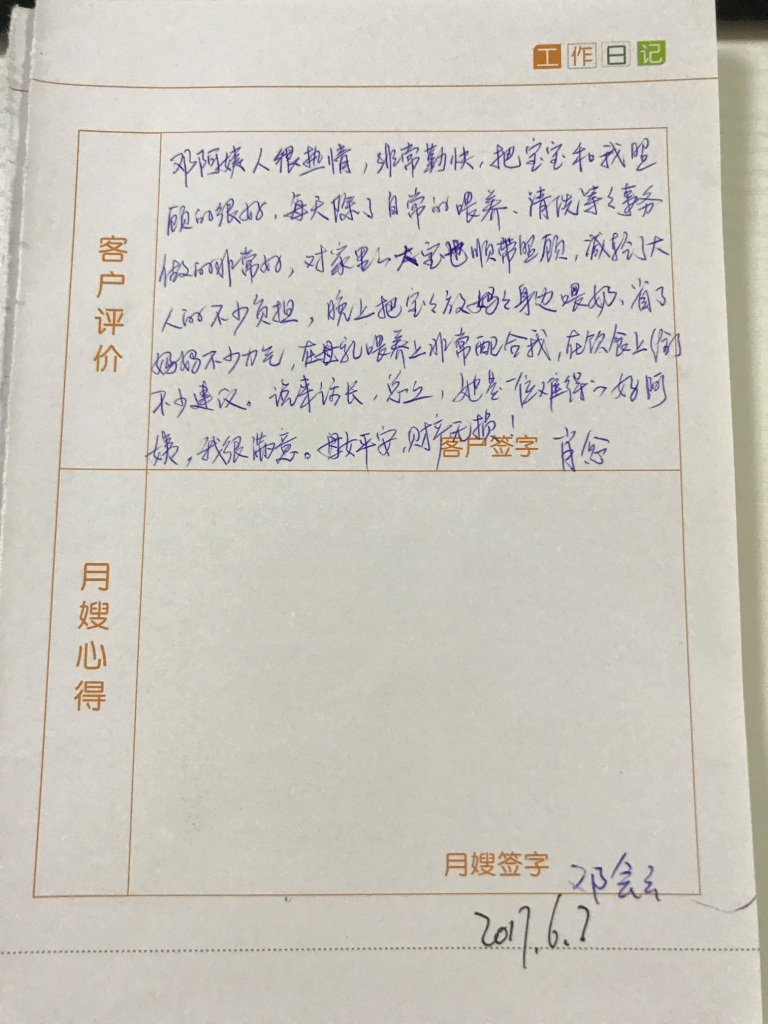 工作日记
客户评价
邓阿姨人很热情，非常勤快，把宝宝和我照
顾的很好，每天除了日常的喂养、清洗等等事务
做的非常好，对家里的大宝也顺带照顾，减轻了大
人的不少负担，晚上把宝宝放妈妈身边喂奶、省了
妈妈不少力气，在母乳喂养上非常配合我，在饮食上给了
不少建议。说来话长，总之，她是一位难得的好阿
姨，我很满意。母女平安，财产无损！
客户签字 肖念
月嫂心得
月嫂签字 邓会云
2017.6.7